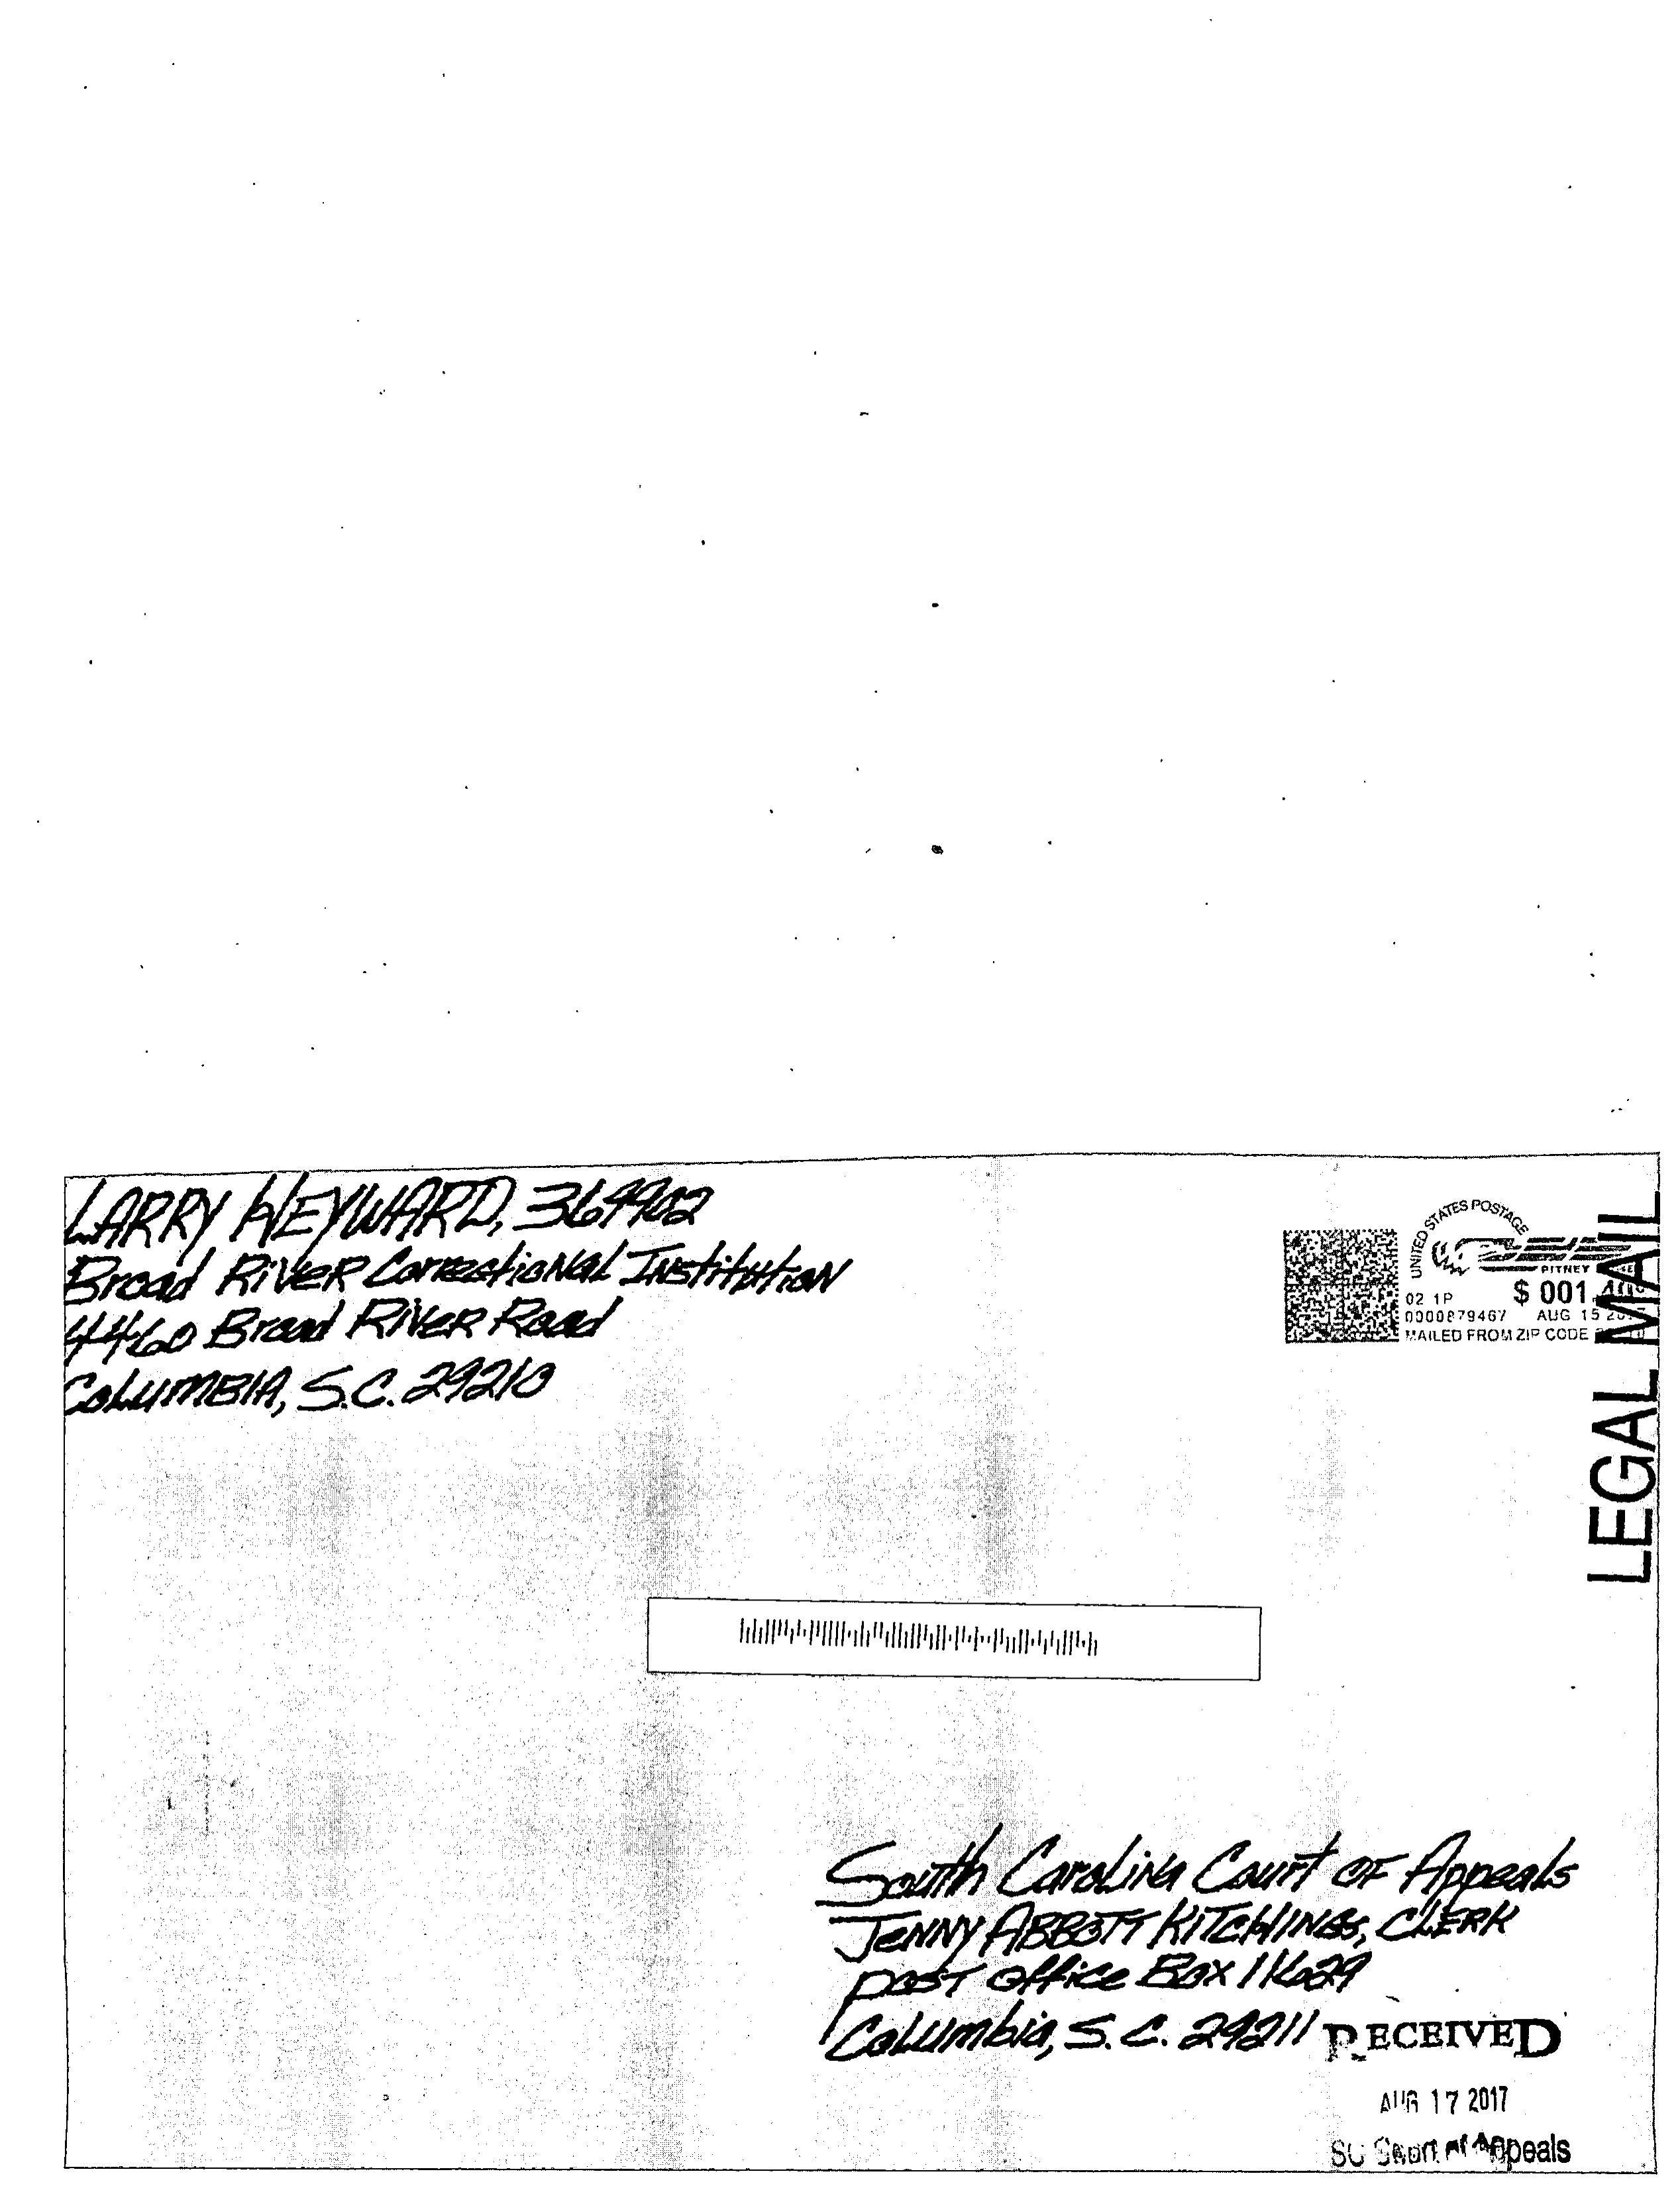 LARRY HEYWARD,
Broad RiVER CorrectioNal INstitutioN
4460 Broad RiVER Road
COLUMBIA, S.C. 29210
UNITED STATES POSTAGE
PITNEY
02 1P
$ 001.
0000879467 AUG 15
MAILED FROM ZIP CODE
LEGAL MAIL
South CaroLiNa Court OF AppeaLs
JENNY ABBOTT KITCHINGS, CLERK
POST Office Box 11629
CoLumbia, S.C. 29211
RECEIVED
AUG 17 2017
SC Court of Appeals